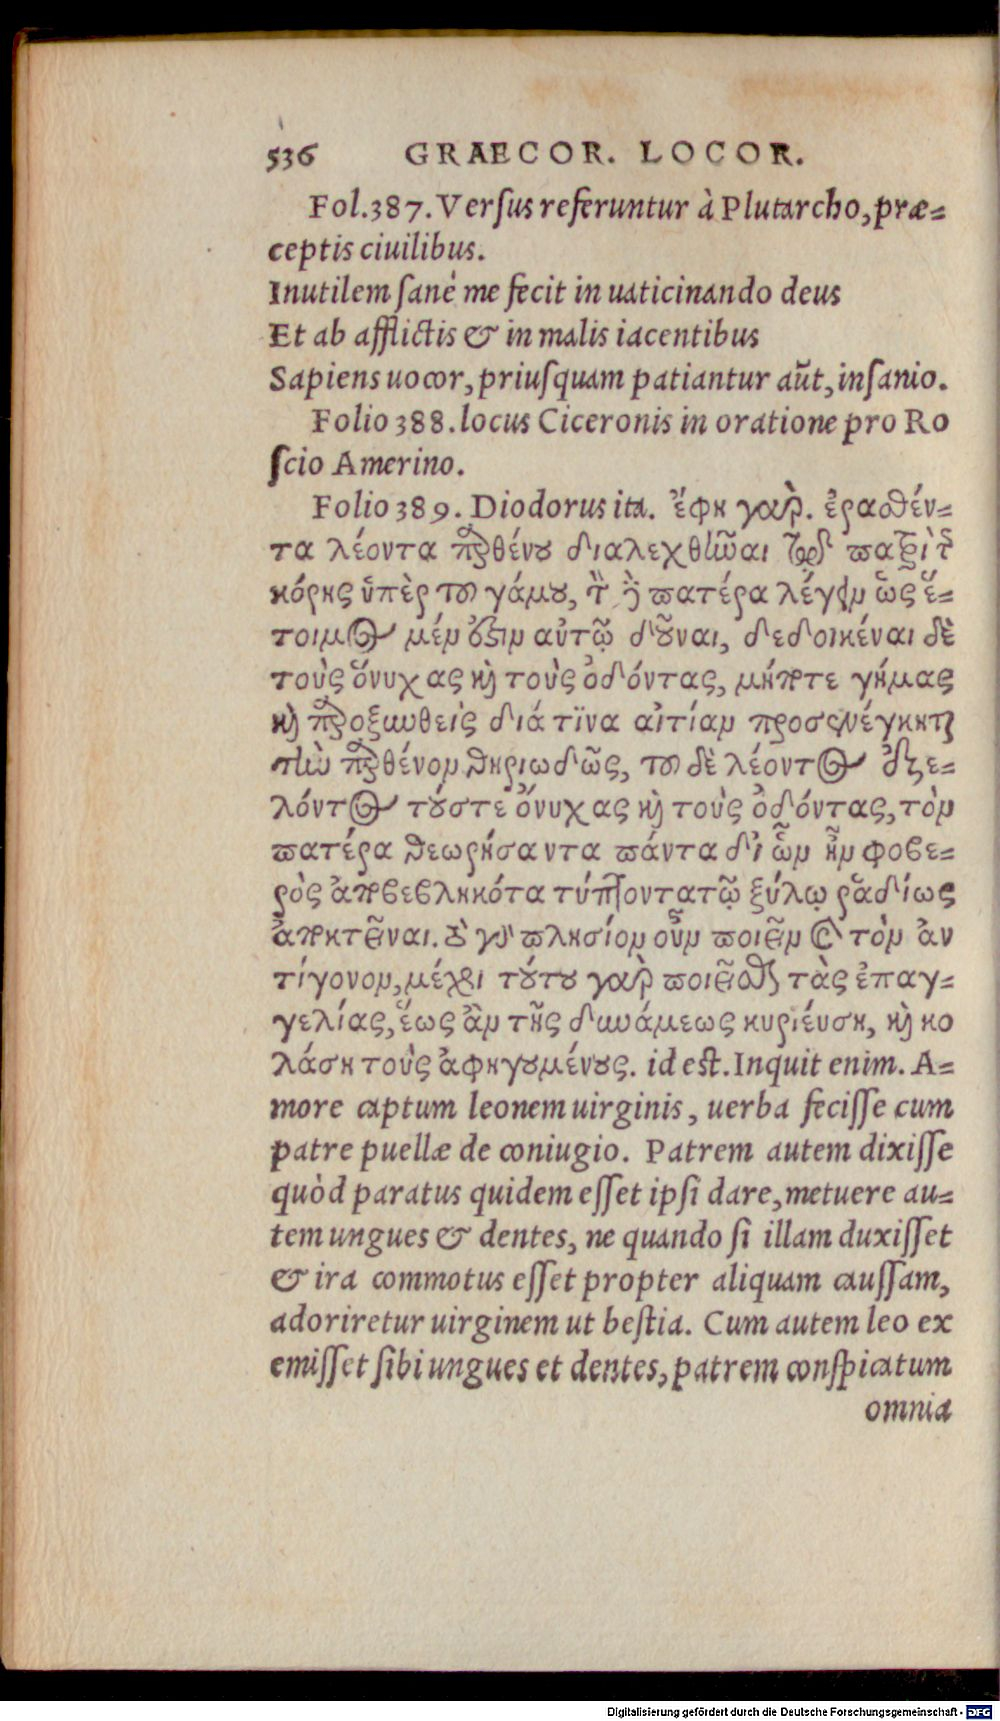 536 GRAECOR. LOCOR.
Fol.387. Versus referuntur à Plutarcho, præ=
ceptis ciuilibus.
Inutilem sanè me fecit in uaticinando deus
Et ab afflictis & in malis iacentibus
Sapiens uocor, priusquam patiantur aūt, insanio.
Folio 388. locus Ciceronis in oratione pro Ro
scio Amerino.
Folio 389. Diodorus ita. ἔφη γὰρ. ἐρασθέν=
τα λέοντα παρθένου διαλεχθῆναι τῷ πατρὶ τῆς
κόρης ὑπὲρ τοῦ γάμου, τὸν δὲ πατέρα λέγειν ὡς ἕ=
τοιμος μέν ὅξιν αὐτῷ δοῦναι, δεδοικέναι δὲ
τοὺς ὄνυχας καὶ τοὺς ὀδόντας, μήποτε γήμας
καὶ παροξυνθεὶς διά τινα αἰτίαν προσενέγκηται
τὴν παρθένον θηριωδῶς, τοῦ δὲ λέοντος ἐξε=
λόντος τούστε ὄνυχας καὶ τοὺς ὀδόντας, τὸν
πατέρα θεωρήσαντα πάντα δι' ὧν ἦν φοβε=
ρὸς ἀποβεβληκότα τύπτοντα τῷ ξύλῳ ῥᾳδίως
ἀποκτεῖναι. πλησίον οὖν ποιεῖν καὶ τὸν ἀν
τίγονον, μέχρι τούτου γὰρ ποιεῖσθαι τὰς ἐπαγ=
γελίας, ἕως ἂν τῆς δυνάμεως κυριεύση, καὶ κο
λάση τοὺς ἀφηγουμένους. id est. Inquit enim. A=
more captum leonem uirginis, uerba fecisse cum
patre puellæ de coniugio. Patrem autem dixisse
quòd paratus quidem esset ipsi dare, metuere au=
tem ungues & dentes, ne quando si illam duxisset
& ira commotus esset propter aliquam caussam,
adoriretur uirginem ut bestia. Cum autem leo ex
emisset sibi ungues et dentes, patrem conspicatum
omnia
Digitalisierung gefördert durch die Deutsche Forschungsgemeinschaft - DFG